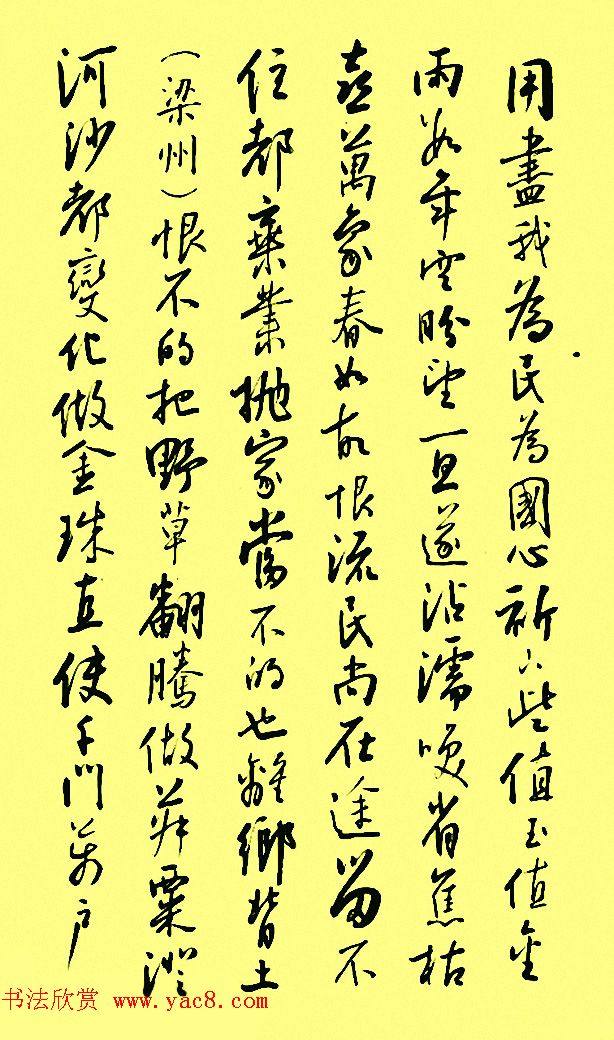 用盡我為民為國心祈下些值玉值金
雨數年空盼望一旦遂沾濡喚省焦枯
喜萬象春如故恨流民尚在途留不
住都棄業拋家當不的也離鄉背土
（梁州）恨不的把野草翻騰做菽粟澄
河沙都變化做金珠直使千門萬户
书法欣赏 www.yac8.com